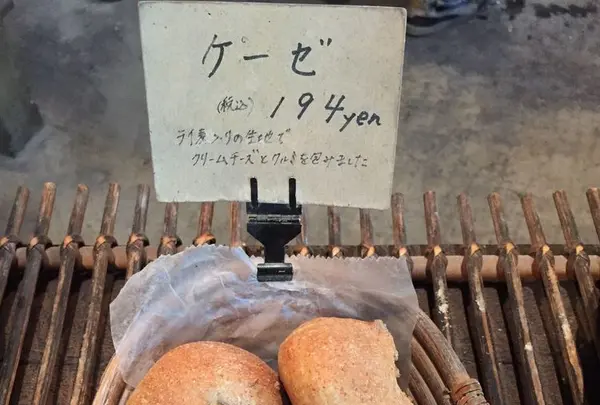 ゲーゼ
(税込) 194yen
ライ麦入りの生地で
クリームチーズとクルミを包みました